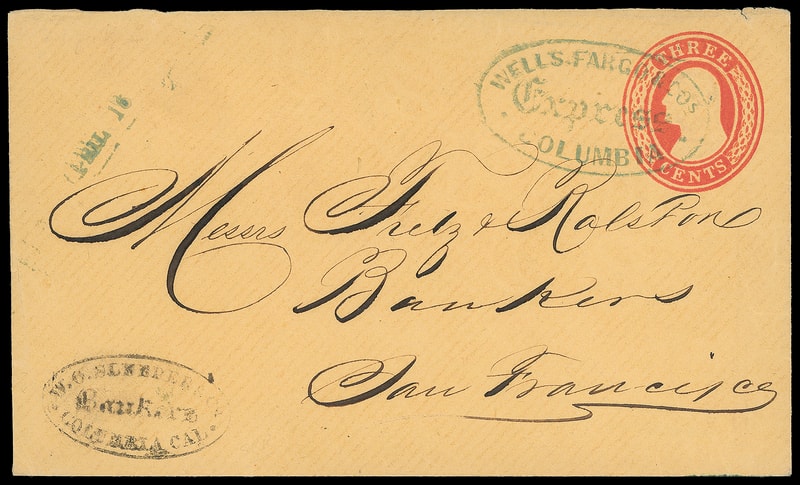 WELLS. FARGO & COS
Express
COLUMBIA
THREE
CENTS
16
Messrs Fretz & Ralston
Bankers
San Francisco
W. O.
Bankers
COLUMBIA CAL.